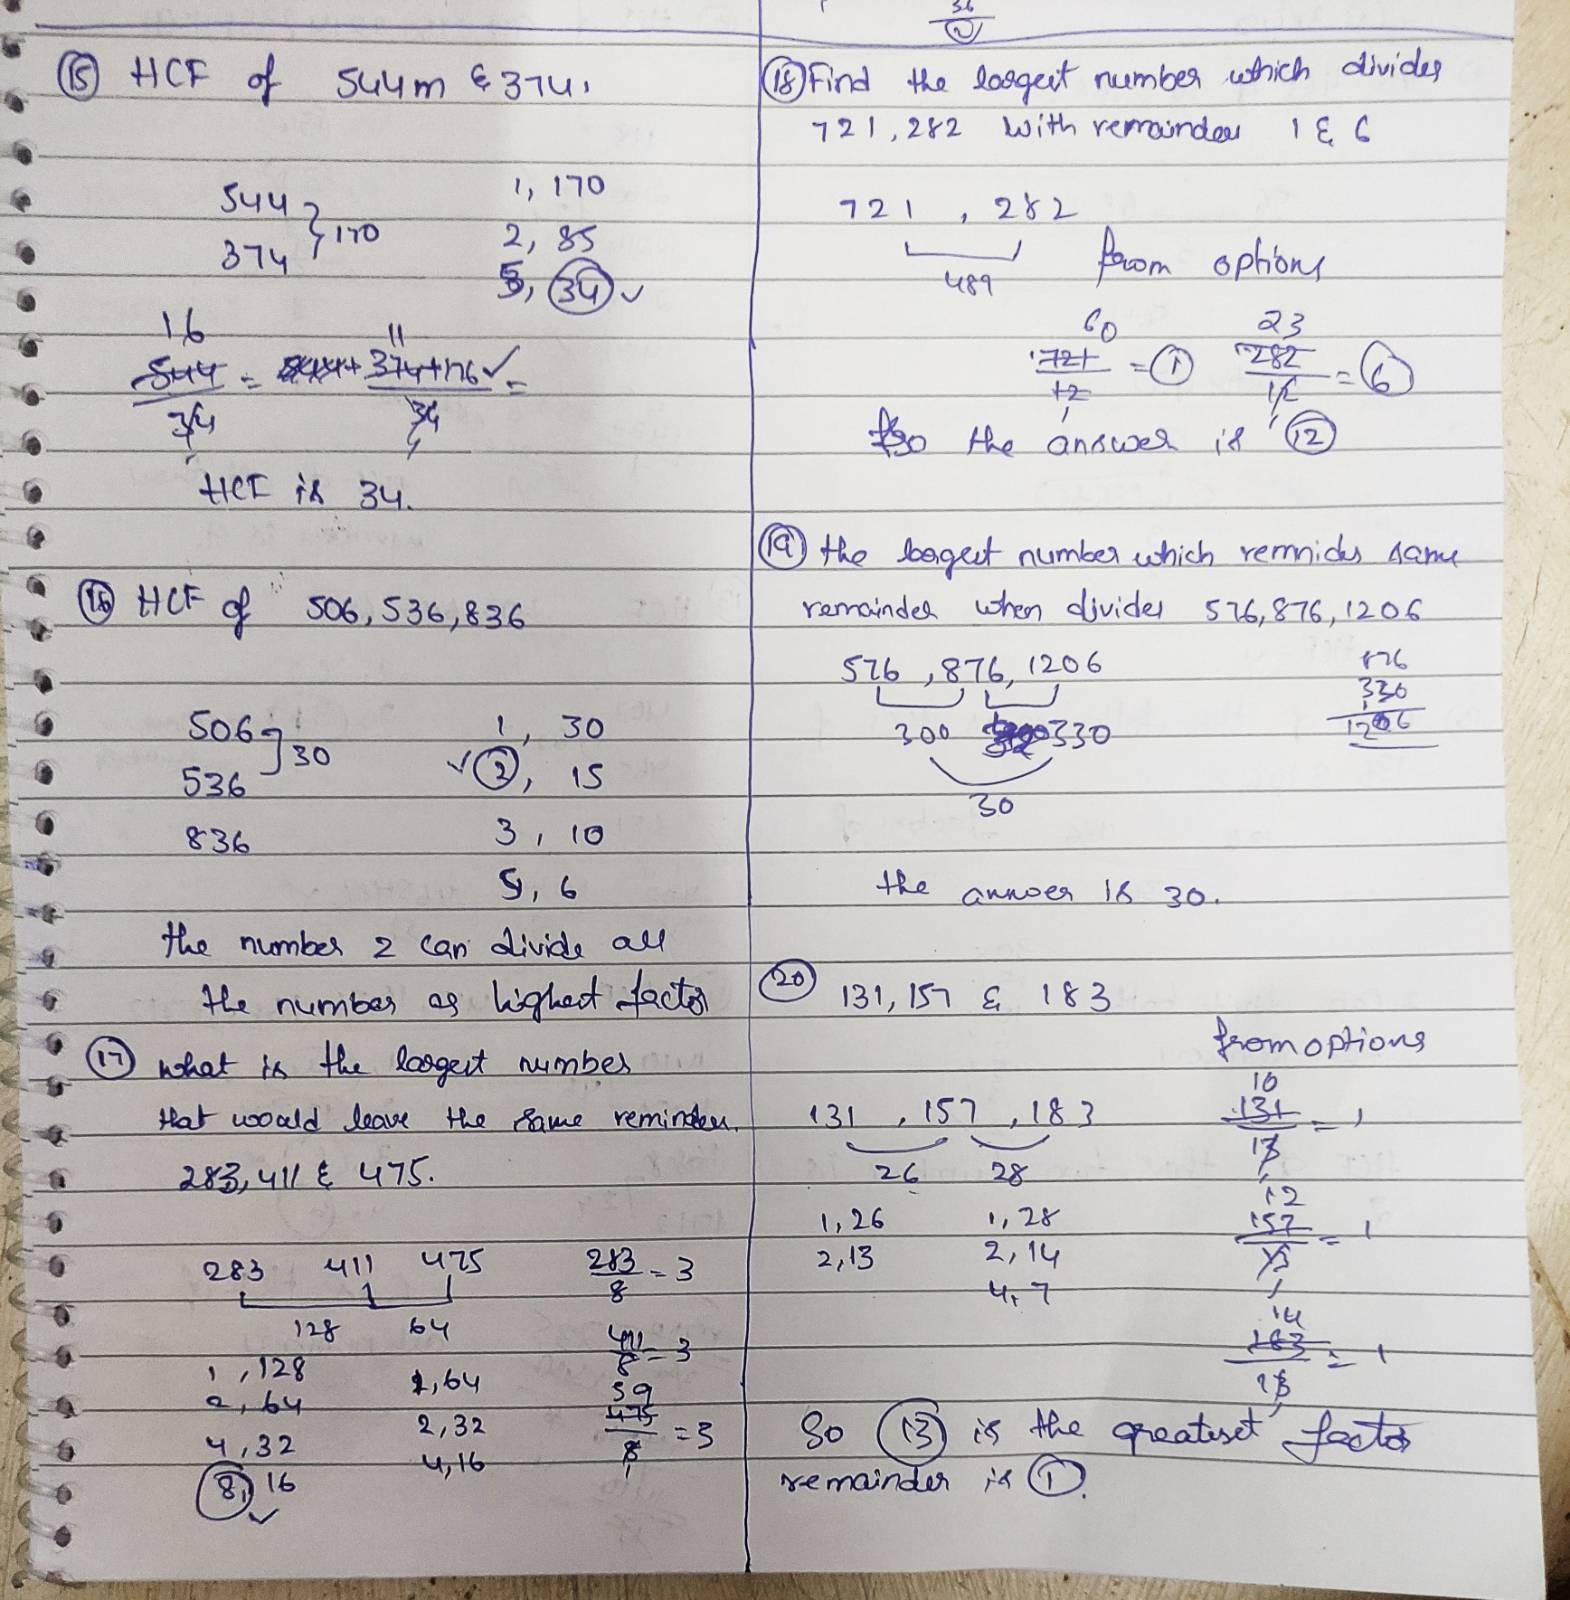 36
15 HCF of 544m & 374.
544
374 } 170
1, 170
2, 85
5, 34 ✓
16 11
544 = 374+176 ✓ =
34 34
HCF is 34.
16 HCF of 506, 536, 836
506
536 ] 30
836
1, 30
✓ 2, 15
3, 10
5, 6
the number 2 can divide all
the number as highest factor
17 what is the largest number
that would leave the same reminder.
283, 411 & 475.
283 411 475
128 64
1, 128
2, 64
4, 32
8, 16 ✓
1, 64
2, 32
4, 16
283/8 = 3
411/8 = 3
59
475/8 = 3
18 Find the largest number which divides
721, 282 with remainder 1 & 6
721, 282
489
from options
60 23
721/12 = 1 282/12 = 6
So the answer is 12
19 the largest number which remnids same
remainder when divides 576, 876, 1206
576, 876, 1206
300 330
30
876
330
1206
the answer is 30.
20 131, 157 & 183
from options
131, 157, 183
26 28
1, 26
2, 13
1, 28
2, 14
4, 7
10
131/13 = 1
12
157/13 = 1
14
183/13 = 1
So 13 is the greatest factor
remainder is 1.